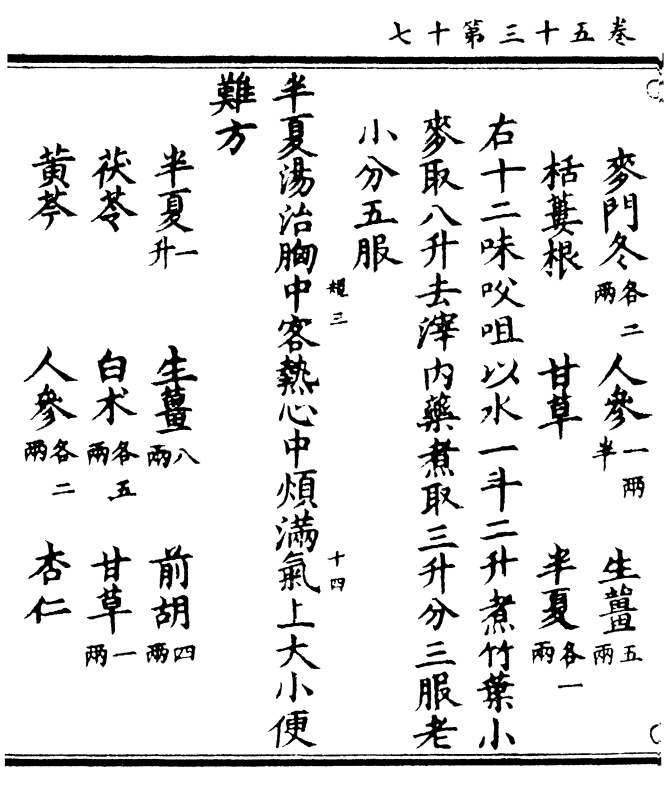 卷五十三第十七
麥門冬各二兩 人參一兩半 生薑五兩
栝蔞根 甘草 半夏各一兩
右十二味㕮咀以水一斗二升煮竹葉小
麥取八升去滓內藥煮取三升分三服老
小分五服
半夏湯治胸中客熱心中煩滿氣上大小便
難方
半夏一升 生薑八兩 前胡四兩
茯苓 白朮各五兩 甘草一兩
黃芩 人參各二兩 杏仁
十四